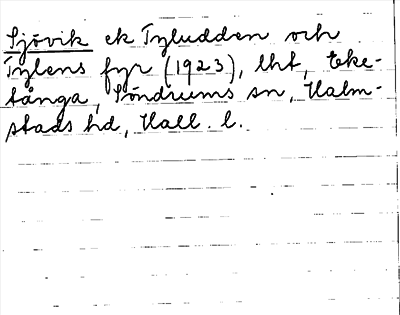 Sjövik ek Tyludden och
Tylens fyr (1923), lht, Eke-
tånga, Söndrums sn, Halm-
stads hd, Hall. l.